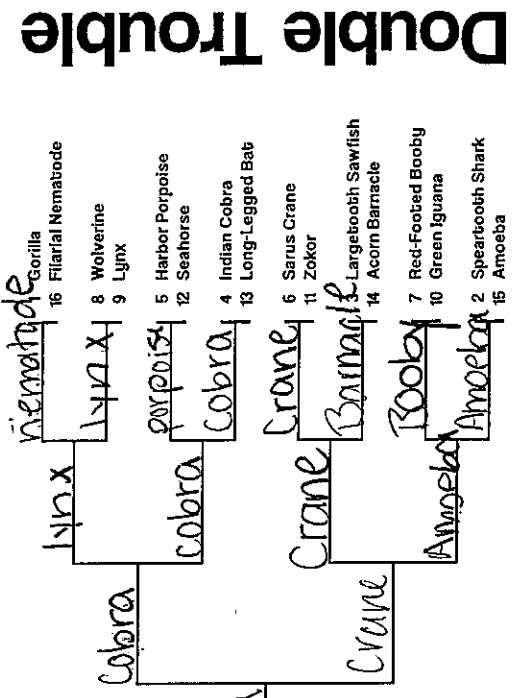 Double Trouble
Gorilla
16 Filarial Nematode
8 Wolverine
9 Lynx
5 Harbor Porpoise
12 Seahorse
4 Indian Cobra
13 Long-Legged Bat
6 Sarus Crane
11 Zokor
3 Largetooth Sawfish
14 Acorn Barnacle
7 Red-Footed Booby
10 Green Iguana
2 Speartooth Shark
15 Amoeba
Nematode
lynx
porpoise
Cobra
Crane
Barnacle
Booby
Amoeba
lynx
cobra
Crane
Amoeba
Cobra
Crane